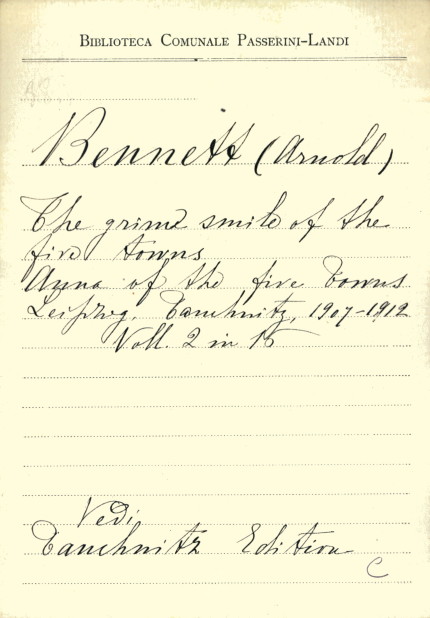 BIBLIOTECA COMUNALE PASSERINI-LANDI
Bennett (Arnold)
The grime smile of the
five towns
Anna of the five towns
Leipzig, Tauchnitz, 1907-1912
Voll. 2 in
Vedi
Tauchnitz Edition
C